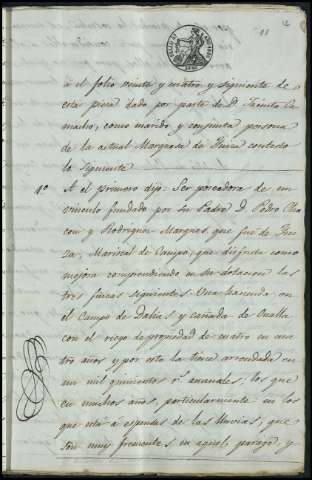 11
á el folio veinte y cuatro y siguiente de
esta pieza dado por parte de D. Jacinto Ca-
macho, como marido y conjunta persona
de la actual Marquesa de Iniza contestó
lo siguiente
1º A el primero dijo: Ser poseedora de un
vinculo fundado por su Padre D. Pedro Cha-
con y Rodriguez Marques que fue de Ini-
za, Mariscal de Campo, que disfruta como
mejora comprendiendo en su dotacion las
tres fincas siguientes. Una hacienda en
el Campo de Dalias y cañada de Onalla
con el riego de propiedad de cuatro en cua-
tro años y por esto la tiene arrendada en
un mil quinientos rs. anuales, los que
en muchos años, particularmente en los
que está á espensas de las lluvias, que
son muy frecuentes en aquel parage, y